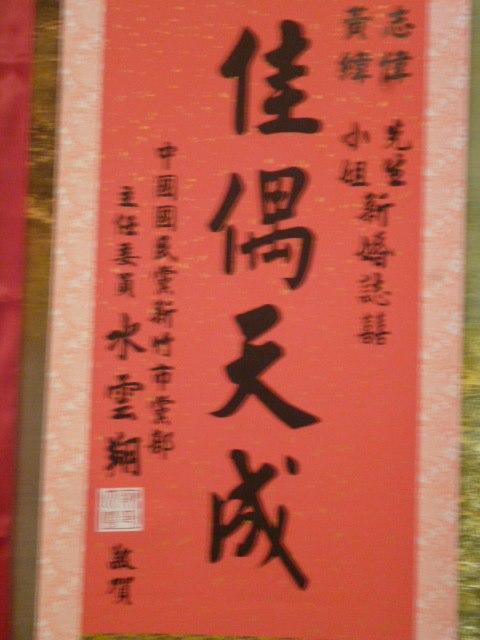 志偉 先生
黃緯 小姐
新婚誌囍
佳偶天成
中國國民黨新竹市黨部
主任委員 水雲翔
敬賀